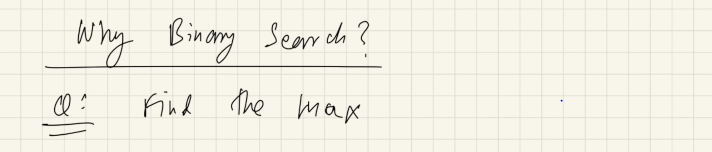 Why Binary Search?
Q: Find the max